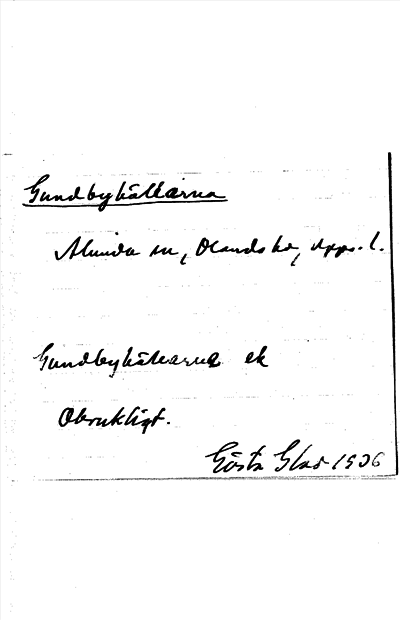 Gundbykällarna
Alunda sn, Olands hd, Upps. l.
Gundbykällarna ek
Obrukligt.
Gösta Glas 1936